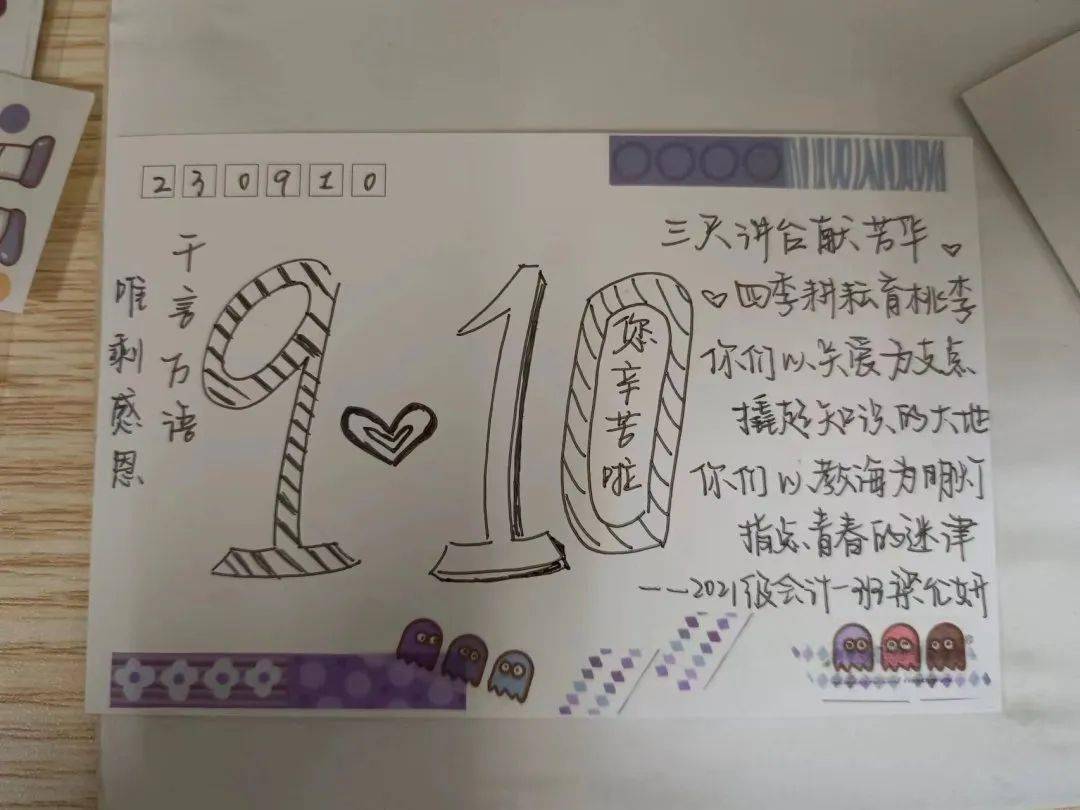 230910
千言万语
唯剩感恩
9·10
您辛苦啦
三尺讲台献芳华
四季耕耘育桃李
你们以关爱为支点
撬起知识的大地
你们以教诲为明灯
指点青春的迷津
——2021级会计一班梁允妍